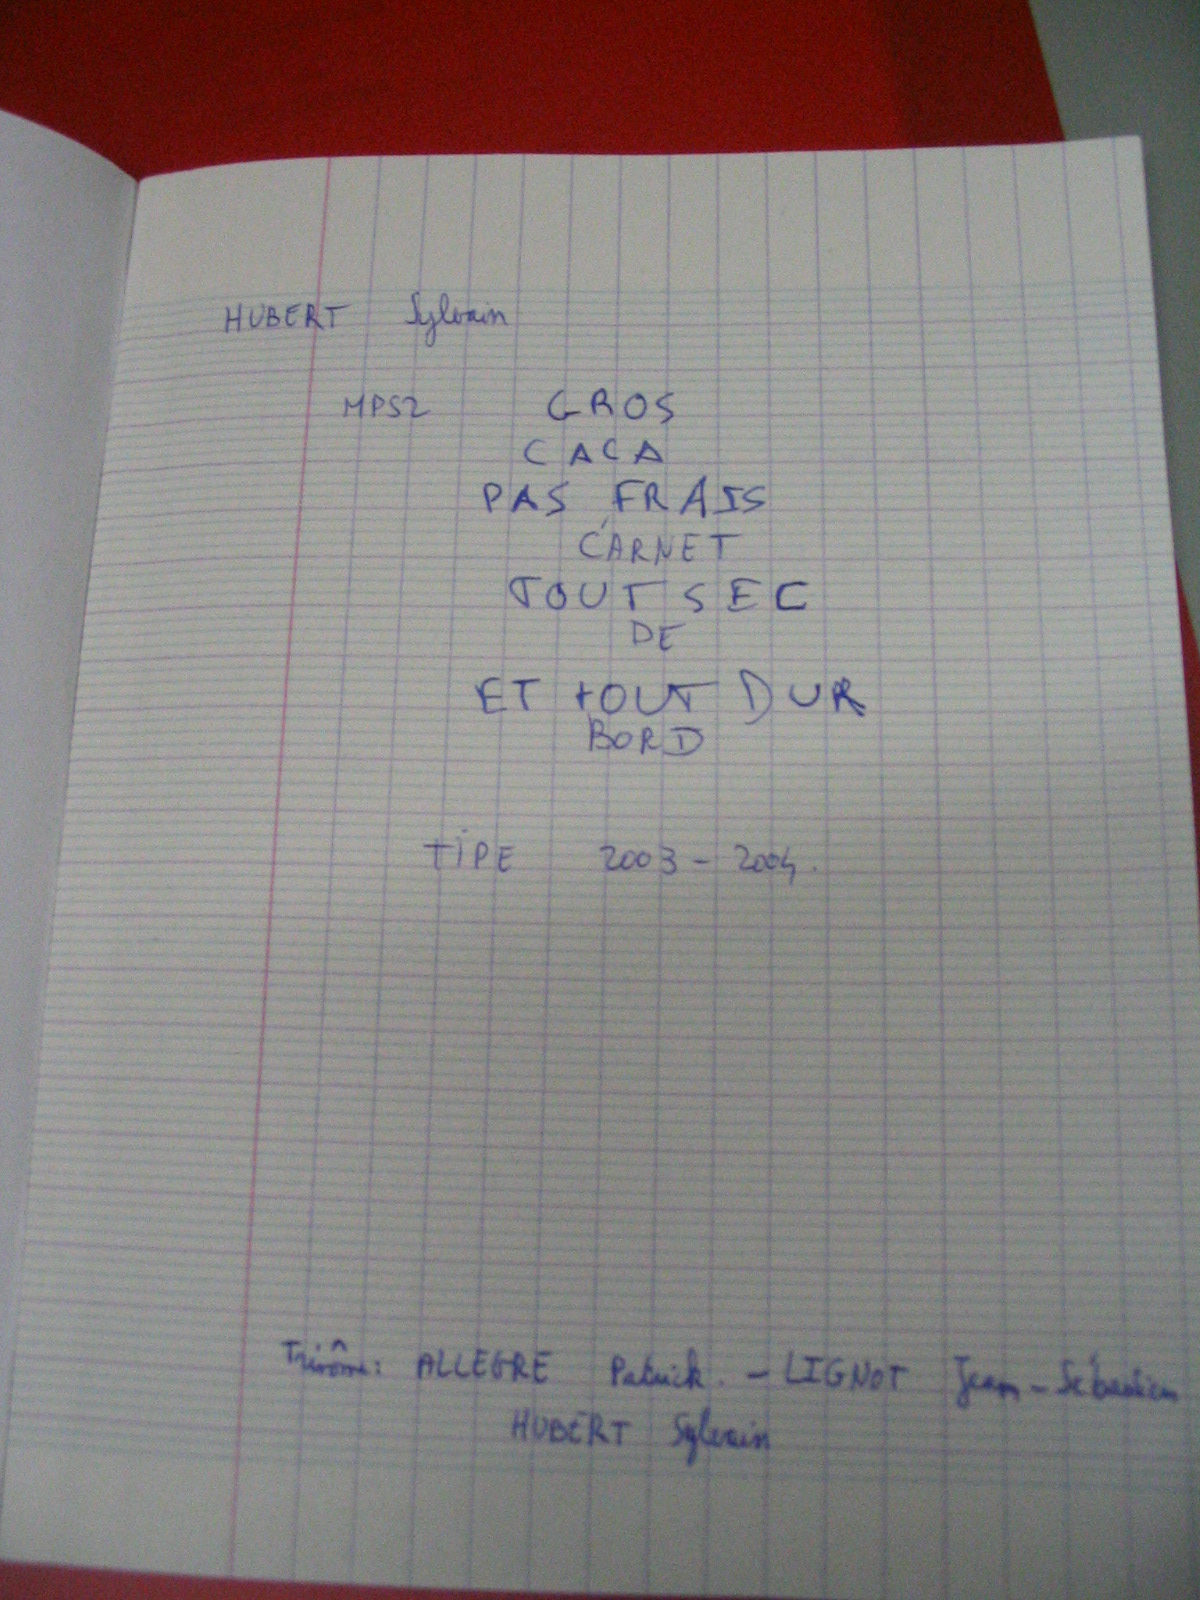 HUBERT Sylvain
MPSI2 GROS
CACA
PAS FRAIS
CARNET
TOUT SEC
DE
ET TOUT DUR
BORD
TIPE 2003-2004.
Trinôme: ALLEGRE Patrick. - LIGNOT Jean-Sébastien
HUBERT Sylvain